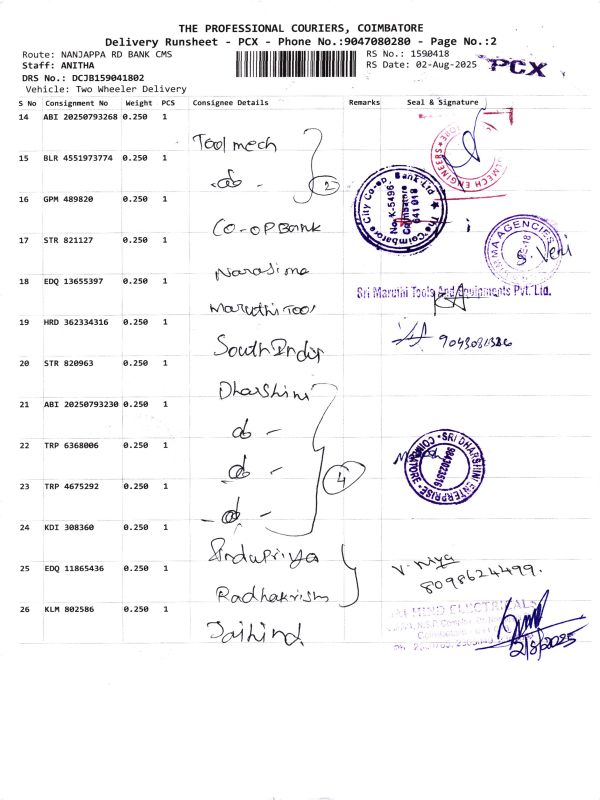 THE PROFESSIONAL COURIERS, COIMBATORE
Delivery Runsheet - PCX - Phone No.:9047080280 - Page No.:2
Route: NANJAPPA RD BANK CMS
RS No.: 1590418
Staff: ANITHA
RS Date: 02-Aug-2025
PCX
DRS No.: DCJB159041802
Vehicle: Two Wheeler Delivery
S No Consignment No Weight PCS Consignee Details Remarks Seal & Signature
14 ABI 20250793268 0.250 1 Toolmech
15 BLR 4551973774 0.250 1 -do- 2
MECH ENGINEERS
16 GPM 489820 0.250 1 CO-OP Bank
The Coimbatore City Co-op. Bank Ltd
No. K-5496
Coimbatore
641 018
17 STR 821127 0.250 1 Narasima
AGENCIES
S. Veni
18 EDQ 13655397 0.250 1 Maruthi Tool
Sri Maruthi Tools And Equipments Pvt. Ltd.
19 HRD 362334316 0.250 1 South Indis
20 STR 820963 0.250 1 Dharshini
21 ABI 20250793230 0.250 1 do -
22 TRP 6368006 0.250 1 do - 4
SRI DHARSHINI ENTERPRISE
COIMBATORE
9843023516
23 TRP 4675292 0.250 1 - do -
24 KDI 308360 0.250 1 Indupriya
25 EDQ 11865436 0.250 1 Radhakrish
8098624499.
26 KLM 802586 0.250 1 Jaihind
JAI HIND ELECTRICALS
2/8/2025